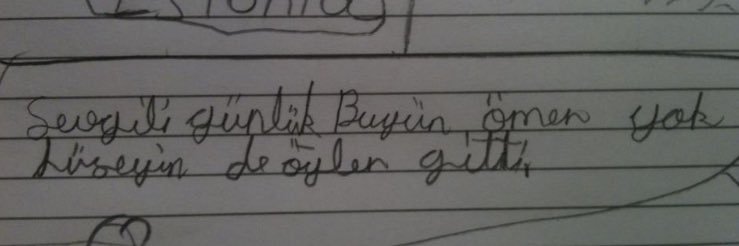 Sevgili günlük Bugün ömer yok
hüseyin de öylen gitti,